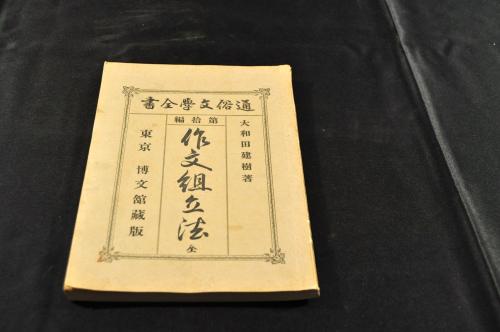 通俗文學全書
第拾編
大和田建樹著
作文組立法 全
東京 博文館藏版